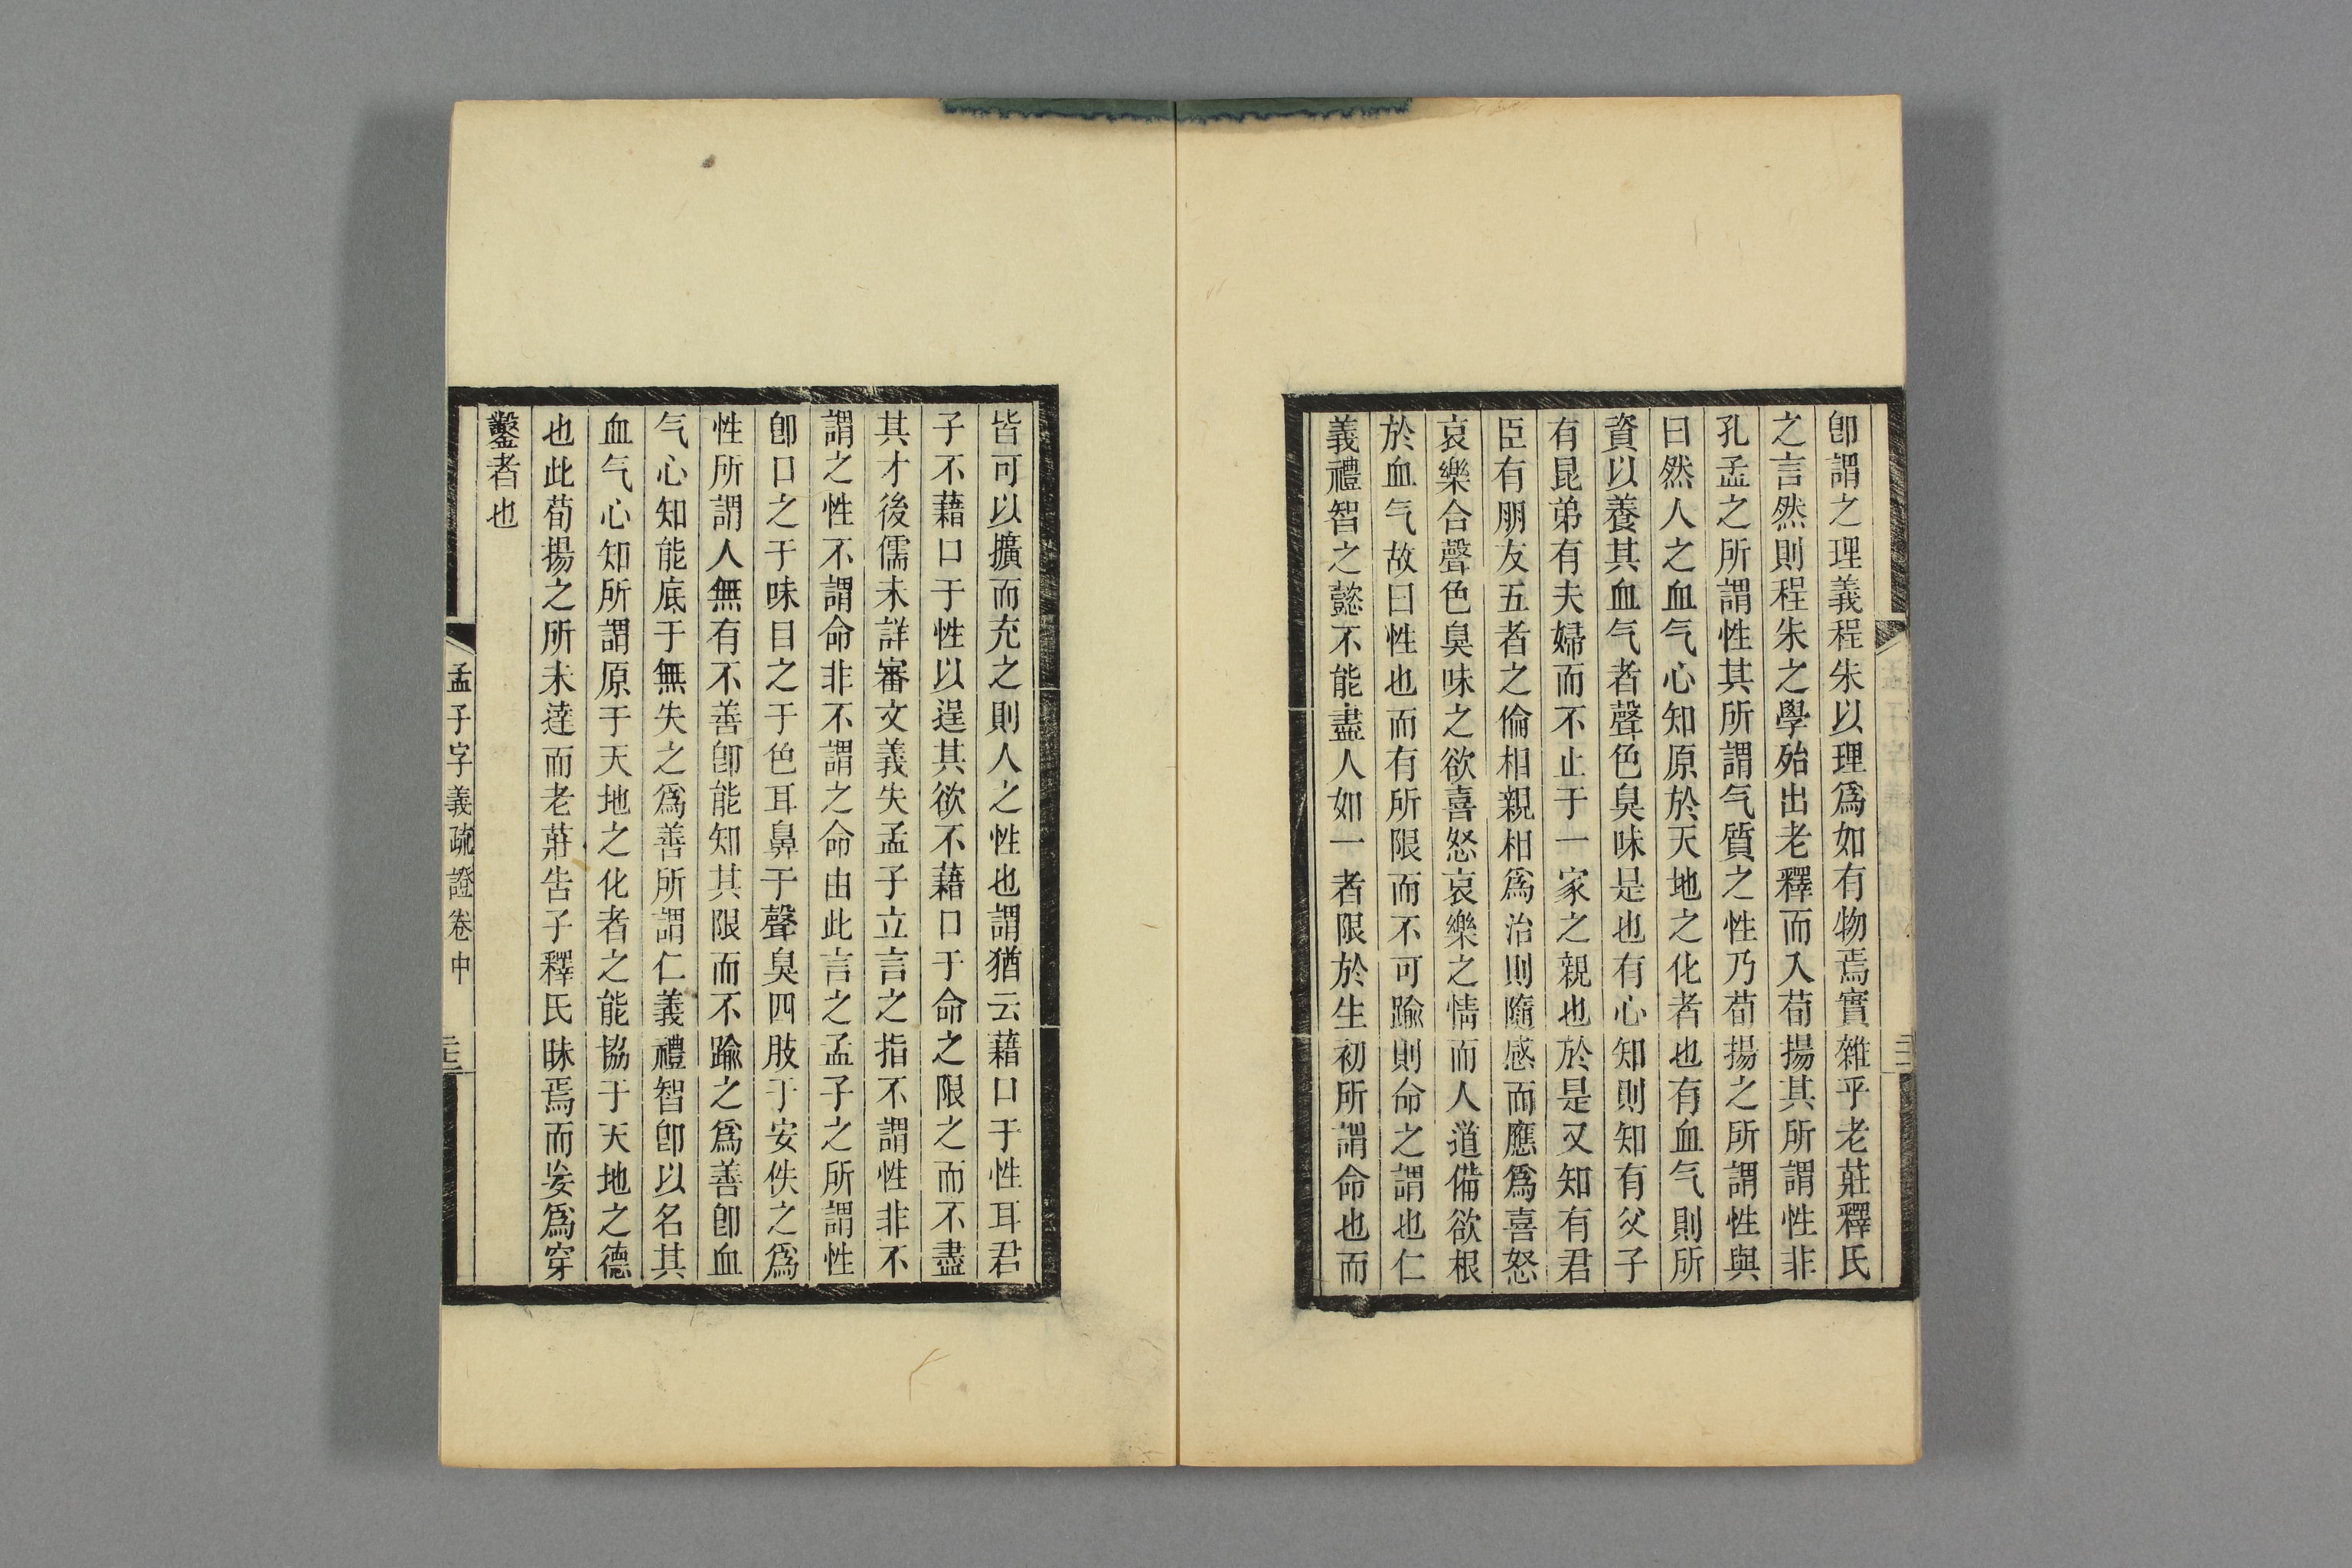 卽謂之理義程朱以理爲如有物焉實雜乎老莊釋氏
之言然則程朱之學殆出老釋而入荀揚其所謂性非
孔孟之所謂性其所謂气質之性乃荀揚之所謂性與
曰然人之血气心知原於天地之化者也有血气則所
資以養其血气者聲色臭味是也有心知則知有父子
有昆弟有夫婦而不止于一家之親也於是又知有君
臣有朋友五者之倫相親相爲治則隨感而應爲喜怒
哀樂合聲色臭味之欲喜怒哀樂之情而人道備欲根
於血气故曰性也而有所限而不可踰則命之謂也仁
義禮智之懿不能盡人如一者限於生初所謂命也而
皆可以擴而充之則人之性也謂猶云藉口于性耳君
子不藉口于性以逞其欲不藉口于命之限之而不盡
其才後儒未詳審文義失孟子立言之指不謂性非不
謂之性不謂命非不謂之命由此言之孟子之所謂性
卽口之于味目之于色耳鼻于聲臭四肢于安佚之爲
性所謂人無有不善卽能知其限而不踰之爲善卽血
气心知能底于無失之爲善所謂仁義禮智卽以名其
血气心知所謂原于天地之化者之能協于天地之德
也此荀揚之所未達而老莊告子釋氏昧焉而妄爲穿
鑿者也
孟子字義疏證卷中